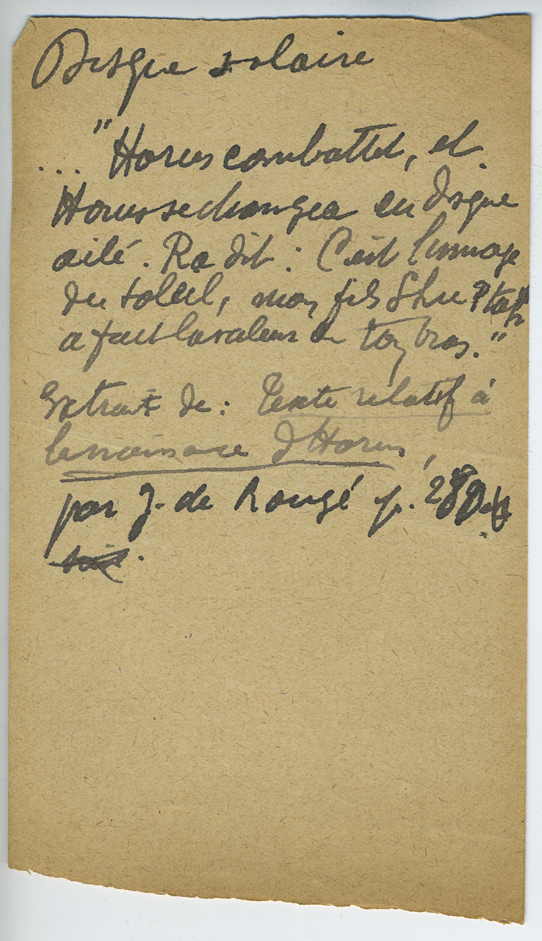 Disque solaire
... "Horus combattit, et
Horus se changea en disque
ailé. Ra dit : C'est l'image
du soleil, mon fils Ptah
a fait la valeur de ton bras."
Extrait de : Texte relatif à
la naissance d'Horus,
par J. de Rougé p. 28